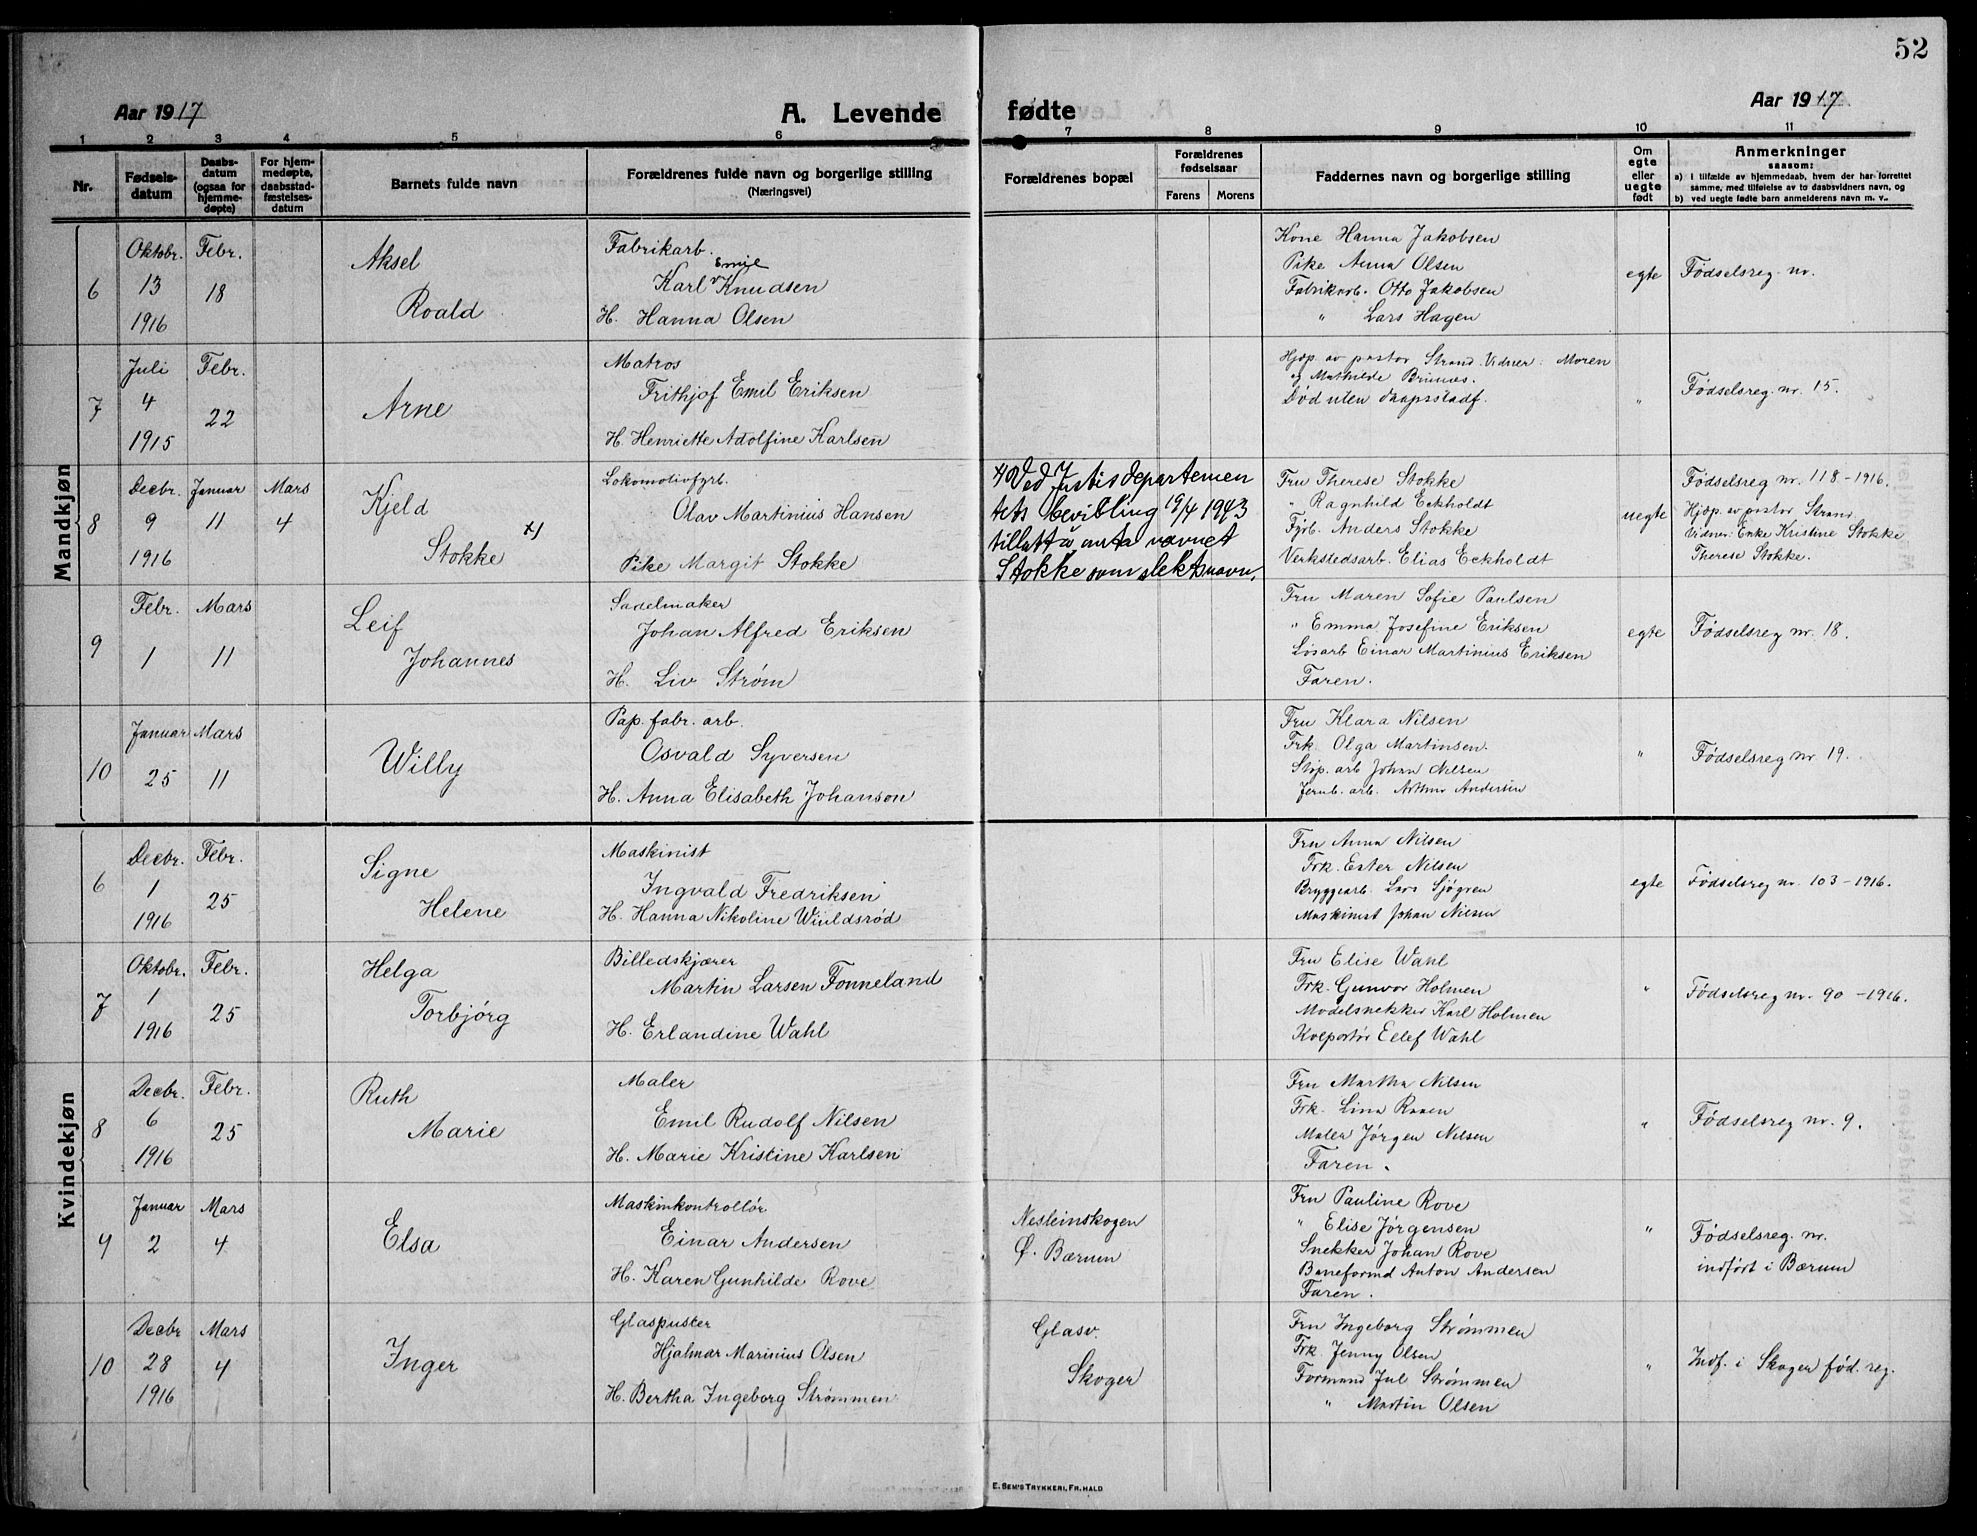 52
Aar 1917 A. Levende fødte Aar 1917.
1 2 3 4 5 6 7 8 9 10 11
Nr.
Fødsels-
datum
Daabs-
datum
(ogsaa for
hjemme-
døpte)
For hjem-
medøpte,
daabsstad-
fæstelses-
datum
Barnets fulde navn
Forældrenes fulde navn og borgerlige stilling
(Næringsvei)
Forældrenes bopæl
Forældrenes
fødselsaar
Farens Morens
Faddernes navn og borgerlige stilling
Om
egte
eller
uegte
født
Anmerkninger
saasom:
a) I tilfælde av hjemmedaab, hvem der har forrettet
samme, med tilføielse av to daabsvidners navn, og
b) ved uegte fødte barn anmelderens navn m. v..
Mandkjøn
6
Oktobr.
13
1916
Febr.
18
Aksel
Roald
Fabrikarb.
Emil
Karl Knudsen
H. Hanna Olsen
Kone Hanna Jakobsen
Pike Anna Olsen
Fabrikarb. Otto Jakobsen
" Lars Hagen
egte
Fødselsreg. nr.
7
Juli
4
1915
Febr.
22
Arne
Matros
Frithjof Emil Eriksen
H. Henriette Adolfine Karlsen
Hjdp. av pastor Strand. Vidner: Moren
og Mathilde Brunæs.
Død uten daapsstadf.
"
Fødselsreg. nr. 15.
8
Decbr.
9
1916
Januar
11
Mars
4
Kjeld
Stokke x)
Lokomotivfyrb.
Olav Martinius Hansen
Pike Margit Stokke
x) Ved Justisdepartemen
tets bevilling 19/4 1943
tillatt å anta navnet
Stokke som slektsnavn.
Fru Therese Stokke
" Ragnhild Eckholdt
Fyrb. Anders Stokke
Verkstedsarb. Elias Eckholdt
uegte
Fødselsreg nr. 118 - 1916.
Hjdp. av pastor Strand
Vidner: Enke Kristine Stokke
Therese Stokke.
9
Febr.
1
Mars
11
Leif
Johannes
Sadelmaker
Johan Alfred Eriksen
H. Liv Strøm
Fru Maren Sofie Paulsen
" Emma Josefine Eriksen
Løsarb Einar Martinius Eriksen
Faren.
egte
Fødselsreg nr. 18.
10
Januar
25
Mars
11
Willy
Pap. fabr. arb.
Osvald Syversen
H. Anna Elisabeth Johanson
Fru Klara Nilsen
Frk. Olga Martinsen.
Støp. arb Johan Nilsen
Jernb. arb. Arthur Andersen
"
Fødselsreg nr 19.
Kvindekjøn
6
Decbr.
1
1916
Febr.
25
Signe
Helene
Maskinist
Ingvald Fredriksen
H. Hanna Nikoline Wiuldsrød
Fru Anna Nilsen
Frk. Ester Nilsen
Bryggearb. Lars Sjøgren
Maskinist Johan Nilsen
egte
Fødselsreg nr. 103 - 1916.
7
Oktobr.
1
1916
Febr.
25
Helga
Torbjørg
Billedskjærer
Martin Larsen Fonneland
H. Erlandine Wahl
Fru Elise Wahl
Frk. Gunvor Holmen
Modelsnekker Karl Holmen
Kolportør Ellef Wahl
"
Fødselsreg nr. 90 - 1916.
8
Decbr.
6
1916
Febr.
25
Ruth
Marie
Maler
Emil Rudolf Nilsen
H. Marie Kristine Karlsen
Fru Martha Nilsen
Frk. Lina Raaen
Maler Jørgen Nilsen
Faren.
"
Fødselsreg nr. 9.
9
Januar
2
Mars
4
Elsa
Maskinkontrollør
Einar Andersen
H. Karen Gunhilde Rove
Nesteinskogen
Ø. Bærum
Fru Pauline Rove
" Elise Jørgensen
Snekker Johan Rove
Baneformd Anton Andersen
Faren.
"
Fødselsreg. nr.
indført i Bærum
10
Decbr
28
1916
Mars
4
Inger
Glaspuster
Hjalmar Marinius Olsen
H. Bertha Ingeborg Strømmen
Glasv.
Skoger
Fru Ingeborg Strømmen
Frk. Jenny Olsen
Formand Jul Strømmen
" Martin Olsen
"
Indf. i Skoger fød. reg.
E. SEM'S TRYKKERI, FR.HALD